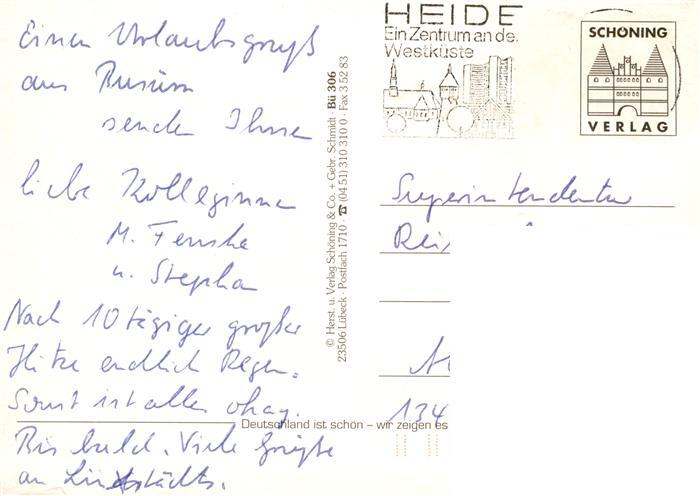 Einen Urlaubsgruß
aus Büsum
senden Ihnen
liebe Kolleginnen
M. Fenske
u. Stephan
Nach 10 tägiger großer
Hitze endlich Regen.
Sonst ist alles okay.
Bis bald. Viele Grüße
an
© Herst. u. Verlag Schöning & Co. + Gebr. Schmidt · Bü 306
23506 Lübeck · Postfach 1710 · ☎ (04 51) 310 310 0 · Fax 3 52 83
HEIDE
Ein Zentrum an de
Westküste
SCHÖNING
VERLAG
Superintendentur
134
Deutschland ist schön – wir zeigen es